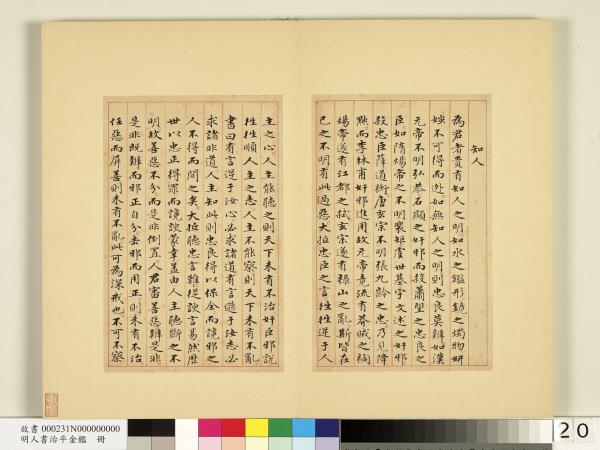 知人
為君者貴有知人之明如水之鑑形鏡之燭物妍
媸不可得而逃如無知人之明則忠良莫辨如漢
元帝不明弘恭石顯之奸邪而殺蕭望之忠良之
臣如隋煬帝之不明裴矩虞世基宇文述之奸邪
殺忠臣薛道衡唐玄宗不明張九齡之忠乃見降
黜而李林甫奸邪進用故元帝竟流有莽賊之禍
煬帝遂有江都之弒玄宗遂有祿山之亂斯皆在
己之不明有此過惡大抵忠臣之言往往逆于人
主之心人主能聽之則天下未有不治奸臣邪說
往往順人主之志人主不能察則天下未有不亂
書曰有言逆于汝心必求諸道有言遜于汝志必
求諸非道人主知此則忠良得以保全而讒邪之
人不得而間之矣大抵聽忠言難從諛言易然歷
世以忠正得罪而讒諛蒙幸蓋由人主聽斷之不
明故善惡不分而是非倒置人君審善惡辨是非
是非既辨而邪正自分去邪而用正則未有不治
任惡而屏善則未有不亂此可為深戒也不可不察
故書 000231N000000000
明人書治平金鑑 冊
20